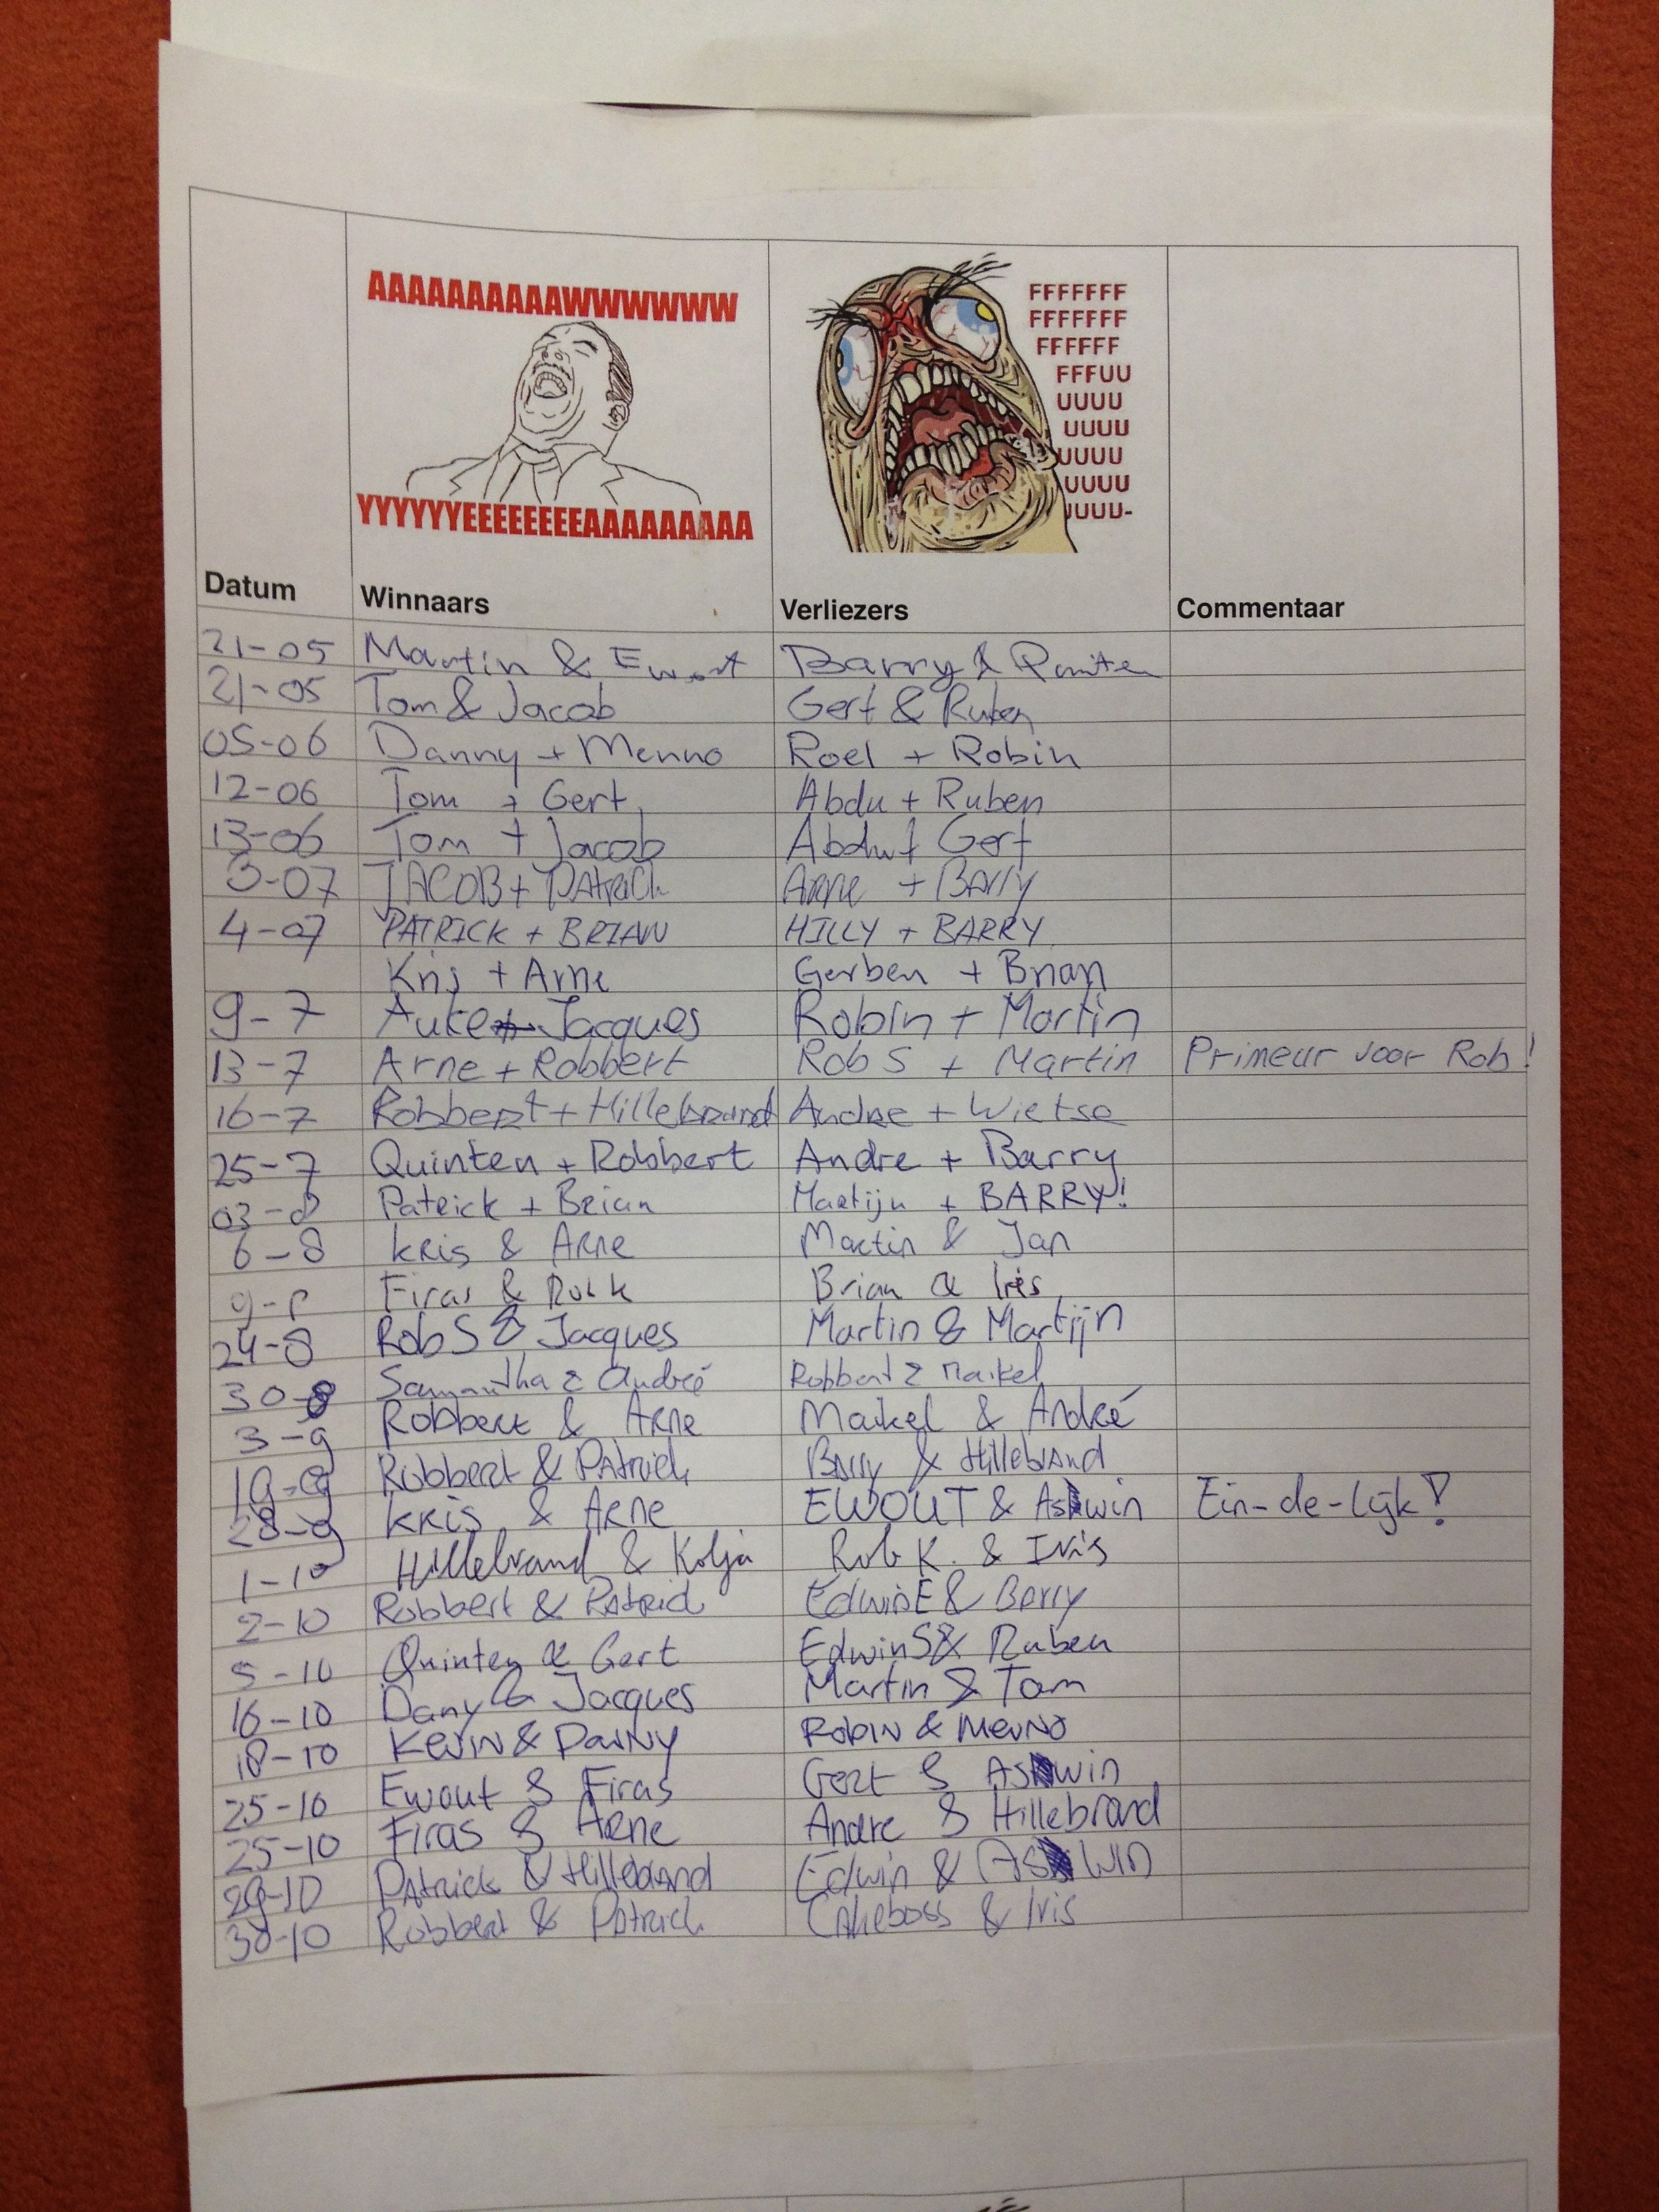 AAAAAAAAAAWWWWWW
YYYYYYEEEEEEEEAAAAAAAAA
FFFFFFF
FFFFFFF
FFFFFF
FFFUU
UUUU
UUUU
UUUU
UUUU
UUUU-
Datum Winnaars Verliezers Commentaar
21-05 Martin & Ewout Barry &
21-05 Tom & Jacob Gert & Ruben
05-06 Danny + Menno Roel + Robin
12-06 Tom + Gert Abdu + Ruben
13-06 Tom + Jacob Abdu + Gert
3-07 JACOB + PAtRiCk Arne + BArry
4-07 PATRICK + BRIAN HILLY + BARRY
Kris + Arne Gerben + Brian
9-7 Auke + Jacques Robin + Martin
13-7 Arne + Robbert Rob S + Martin Primeur voor Rob!
16-7 Robbert + Hillebrand Andre + Wietse
25-7 Quinten + Robbert Andre + Barry
03-8 Patrick + Brian Martijn + BARRY!
6-8 Kris & Arne Martin & Jan
9-8 Firas & Rob K Brian & Iris
24-8 Rob S & Jacques Martin & Martijn
30-8 Samantha & André Robbert & Maikel
3-9 Robbert & Arne Maikel & André
19-9 Robbert & PAtrick BArry & HillebrAnd
28-9 Kris & Arne EWOUT & Aswin Ein-de-lijk!
1-10 Hillebrand & Kolja Rob K. & Iris
2-10 Robbert & PAtrick Edwin E & Barry
5-10 Quinten & Gert Edwin S & Ruben
16-10 Dany & Jacques Martin & Tom
18-10 KEVIN & DANNY ROBIN & MENNO
25-10 Ewout & Firas Gert & ASwin
25-10 Firas & Arne Andre & Hillebrand
29-10 PAtrick & HillebrAnd Edwin & ASWIN
30-10 Robbert & PAtrick CAkeboss & Iris